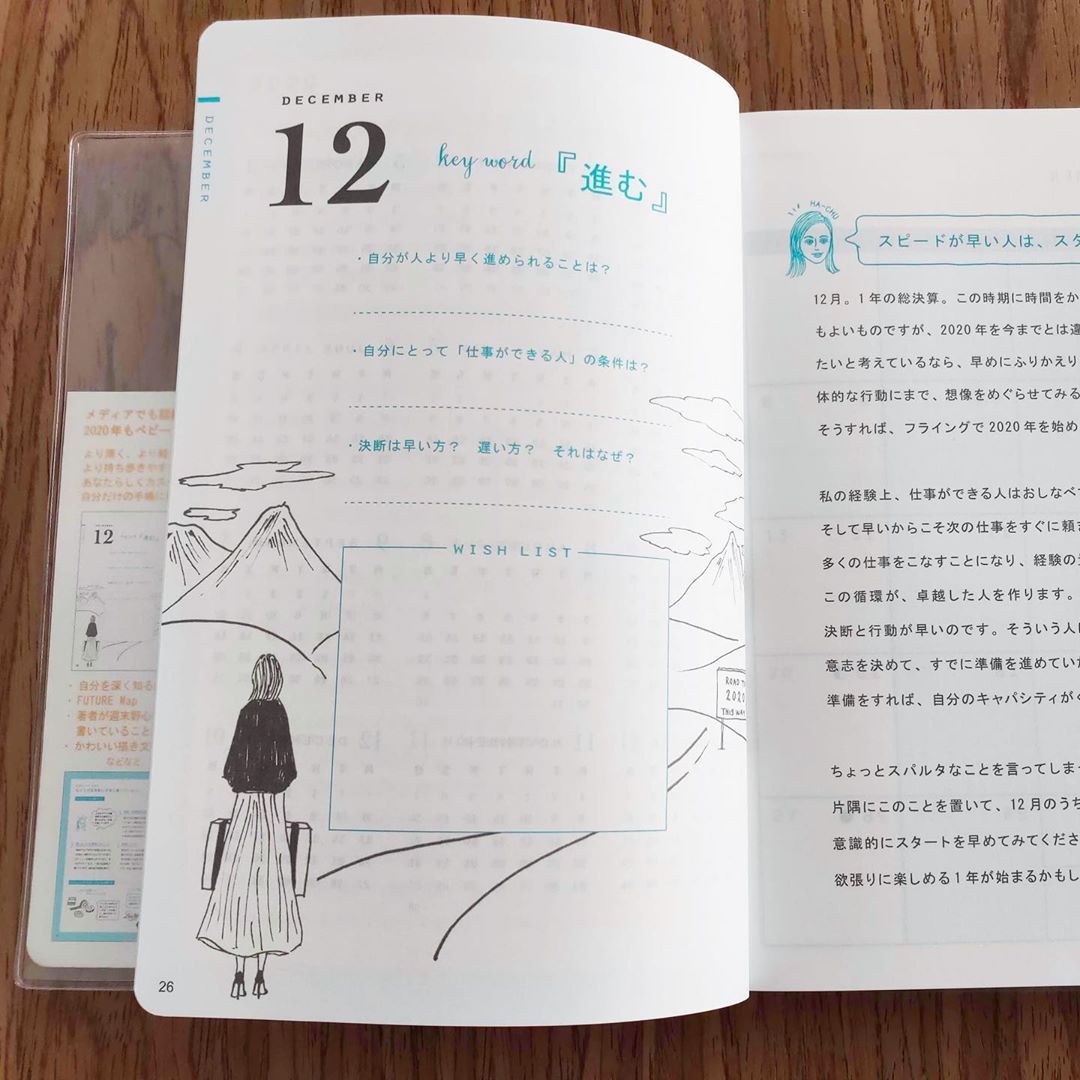 DECEMBER
12
DECEMBER
key word 『進む』
・自分が人より早く進められることは？
・自分にとって「仕事ができる人」の条件は？
・決断は早い方？ 遅い方？ それはなぜ？
WISH LIST
ROAD TO
2020
THIS WAY
26
MA-CHU
スピードが早い人は、スタ
12月。1年の総決算。この時期に時間をか
もよいものですが、2020年を今までとは違
たいと考えているなら、早めにふりかえり
体的な行動にまで、想像をめぐらせてみる
そうすれば、フライングで2020年を始め
私の経験上、仕事ができる人はおしなべ
そして早いからこそ次の仕事をすぐに頼
多くの仕事をこなすことになり、経験の
この循環が、卓越した人を作ります。
決断と行動が早いのです。そういう人
意志を決めて、すでに準備を進めてい
準備をすれば、自分のキャパシティが
ちょっとスパルタなことを言ってしま
片隅にこのことを置いて、12月のうち
意識的にスタートを早めてみてくださ
欲張りに楽しめる1年が始まるかもし
メディアでも話題
2020年もベビー
より薄く、より軽
より持ち歩きやす
あなたらしくカス
自分だけの手帳に
12
・自分を深く知る
・FUTURE Map
・著者が週末野心
書いていること
・かわいい描き文
などなど